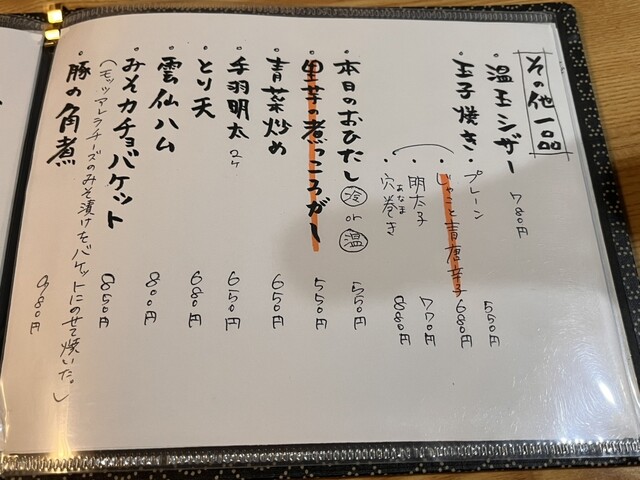 その他一品
・温玉シザー 780円
・玉子焼き
・プレーン 550円
・じゃこと青唐辛子 680円
・明太子 770円
・穴巻き 880円
あなま
・本日のおひたし 冷 or 温 550円
・里芋の煮っころがし 550円
・青菜炒め 650円
・手羽明太 2ケ 650円
・とり天 680円
・雲仙ハム 800円
・みそカチョバケット 850円
(モッツアレラチーズのみそ漬けをバケットにのせて焼いた。)
・豚の角煮 980円